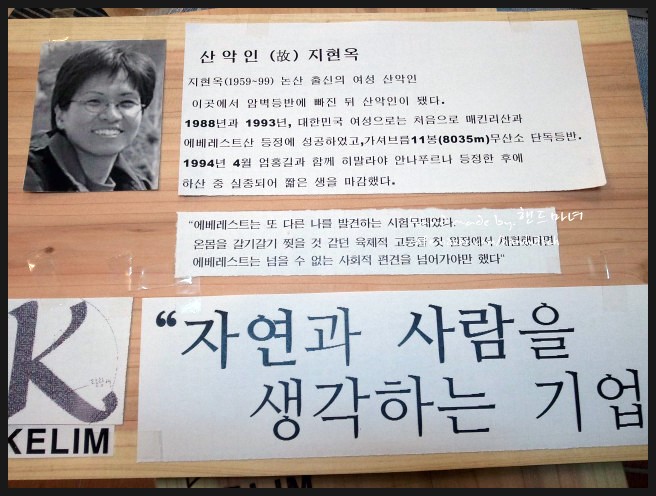 산악인 (故) 지현옥
지현옥(1959~99) 논산 출신의 여성 산악인
이곳에서 암벽등반에 빠진 뒤 산악인이 됐다.
1988년과 1993년, 대한민국 여성으로는 처음으로 매킨리산과
에베레스트산 등정에 성공하였고,가셔브룸11봉(8035m)무산소 단독등반.
1994년 4월 엄홍길과 함께 히말라야 안나푸르나 등정한 후에
하산 중 실종되어 짧은 생을 마감했다.
"에베레스트는 또 다른 나를 발견하는 시험무대였다.
made by. 핸드마녀
온몸을 갈기갈기 찢을 것 같던 육체적 고통을 첫 원정에서 체험했다면
에베레스트는 넘을 수 없는 사회적 편견을 넘어가야만 했다"
K
KELIM
“자연과 사람을
생각하는 기업